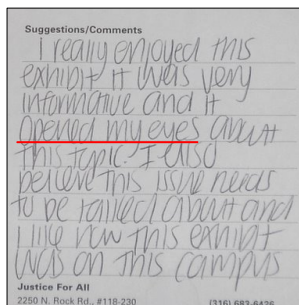 Suggestions/Comments
I really enjoyed this
exhibit it was very
informative and it
opened my eyes about
this topic. I also
believe this issue needs
to be talked about and
I like how this exhibit
was on this campus
Justice For All
2250 N. Rock Rd., #118-230 (316) 683-6426